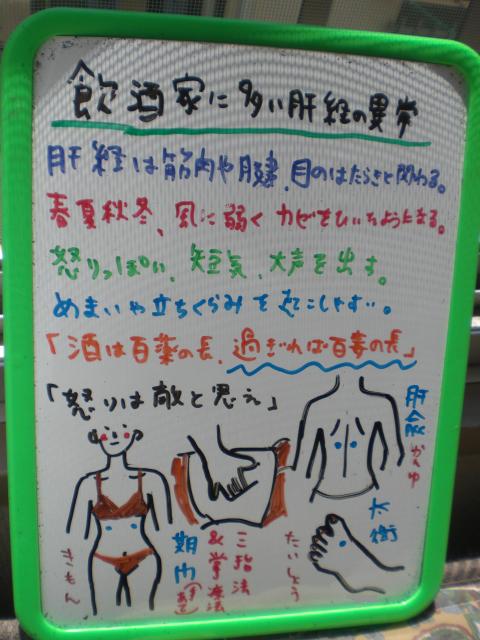 飲酒家に多い肝経の異常
肝経は筋肉や腱、目のはたらきと関わる。
春夏秋冬、風に弱く カゼをひいたようになる。
怒りっぽい、短気、大声を出す。
めまいや立ちくらみを起こしやすい。
「酒は百薬の長、過ぎれば百毒の長」
「怒りは敵と思え」
肝兪
かんゆ
太衝
たいしょう
三指法
&掌療法
(手あて)
期門
きもん